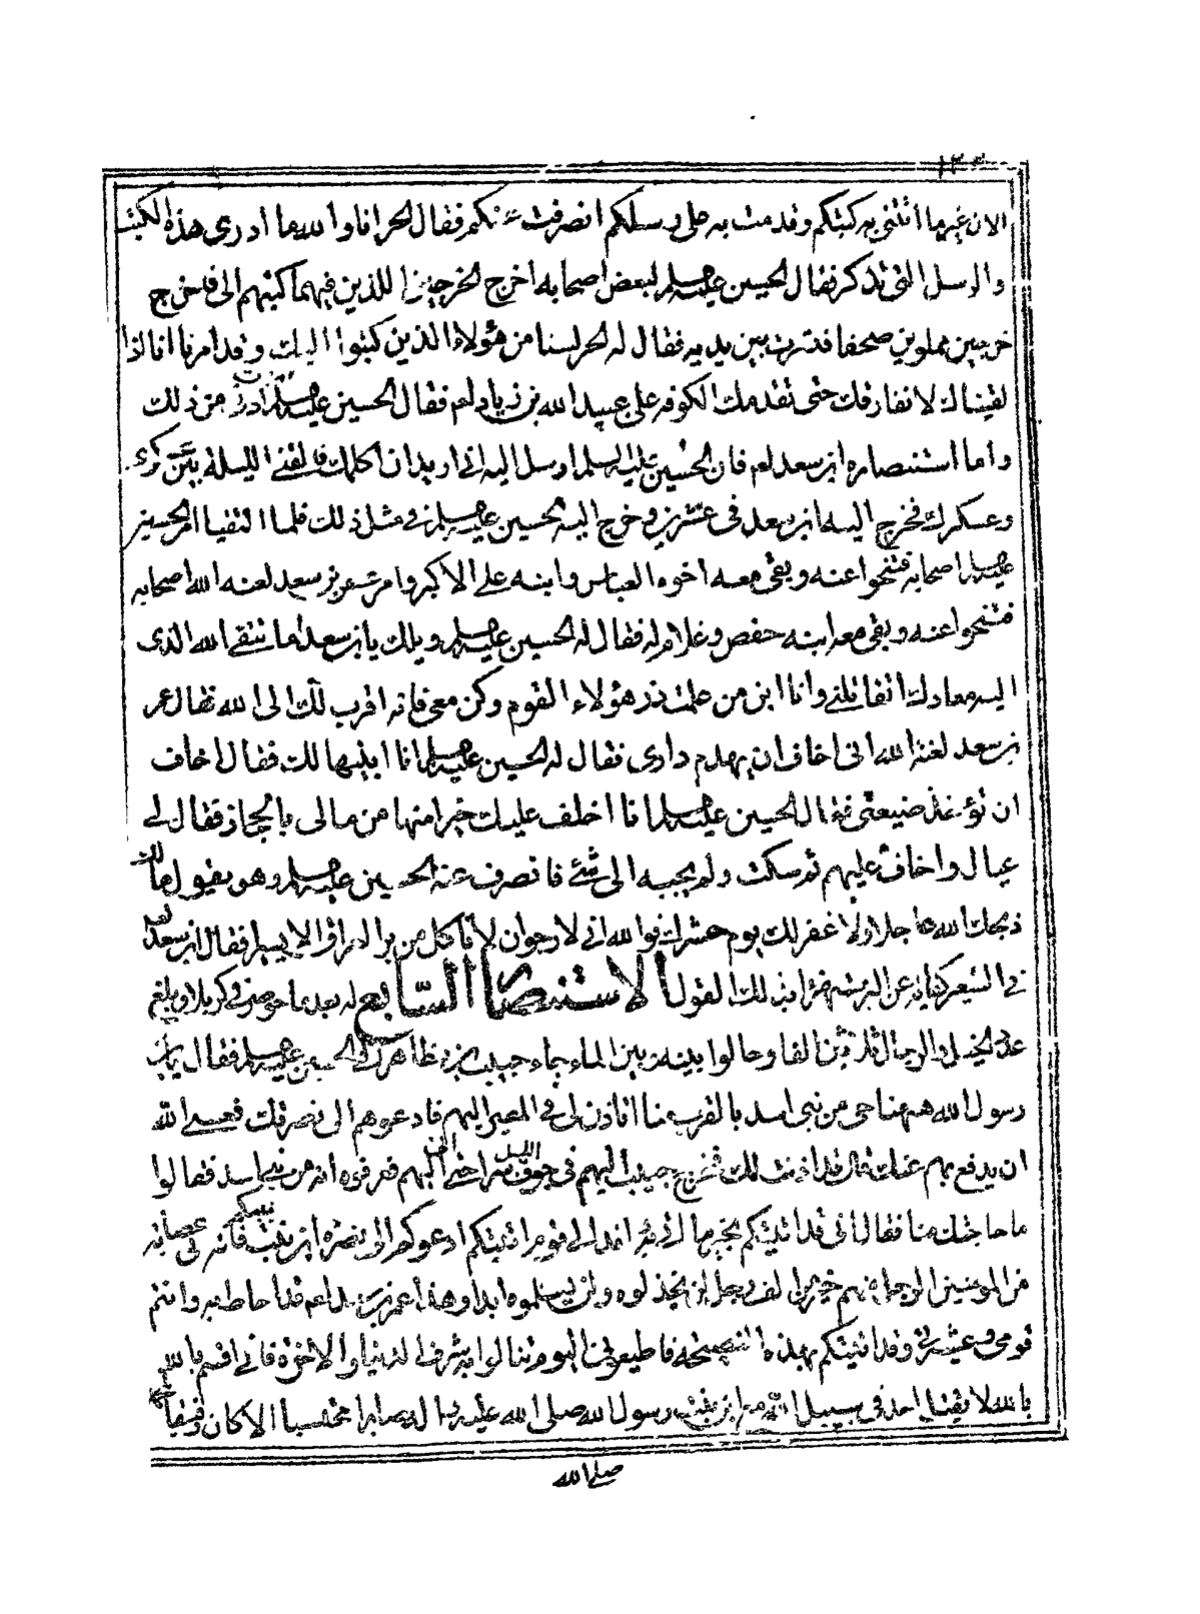 ١٣٣
الان غير ما اتتنى به كتبكم وقدمت به على رسلكم انصرفت عنكم فقال الحر انا والله ما ادرى هذه الكتب
والرسل التى تذكر فقال الحسين عليه السلم لبعض اصحابه اخرج الخرجين اللذين فيهما كتبهم الى فاخرج
خرجين مملوين صحفا فنثرت بين يديه فقال له الحر لسنا من هؤلاء الذين كتبوا اليك وقد امرنا انا اذا
لقيناك لا نفارقك حتى نقدمك الكوفه على عبيد الله بن زياد لعم فقال الحسين عليه السلم الموت ادنى من ذلك
واما استنصاره ابن سعد لعم فان الحسين عليه السلم ارسل اليه انى اريد ان اكلمك فالقنى الليله بين عسكرى
وعسكرك فخرج اليه ابن سعد فى عشرين وخرج اليه الحسين عليه السلم فى مثل ذلك فلما التقيا امر الحسين
عليه السلم اصحابه فتنحوا عنه وبقى معه اخوه العباس وابنه على الاكبر وامر عمر بن سعد لعنه الله اصحابه
فتنحوا عنه وبقى معه ابنه حفص وغلام له فقال له الحسين عليه السلم ويلك يا بن سعد اما تتقى الله الذى
اليه معادك اتقاتلنى وانا ابن من علمت ذر هؤلاء القوم وكن معى فانه اقرب لك الى الله فقال عمر
بن سعد لعنه الله انى اخاف ان يهدم دارى فقال له الحسين عليه السلم انا ابنيها لك فقال اخاف
ان تؤخذ ضيعتى فقال الحسين عليه السلم انا اخلف عليك خيرا منها من مالى بالحجاز فقال لى
عيال واخاف عليهم ثم سكت ولم يجبه الى شئ فانصرف عنه الحسين عليه السلم وهو يقول مالك
ذبحك الله عاجلا ولا غفر لك يوم حشرك فوالله انى لارجوان لا تاكل من بر العراق الا يسيرا فقال ابن سعد لعم
فى الشعير كفاية عن البر مستهزئا بذلك القول الاستنصار السابع له بعد ما حوصر فى كربلا وبلغ
عدة الخيل والرجال ثلاثين الفا وحالوا بينه وبين الماء جاء حبيب بن مظاهر الى الحسين عليه السلم فقال يابن
رسول الله ههنا حى من بنى اسد بالقرب منا اتاذن لى فى المصير اليهم فادعوهم الى نصرتك فعسى الله
ان يدفع بهم عنك قال قد اذنت لك فخرج حبيب اليهم فى جوف الليل متنكرا حتى اتى اليهم فعرفوه انه من بنى اسد فقالوا
ما حاجتك منا فقال انى قد اتيتكم بخير ما اتى به وافد الى قوم اتيتكم ادعوكم الى نصرة ابن بنت نبيكم فانه فى عصابة
من المومنين الرجل منهم خير من الف رجل لن يخذلوه ولن يسلموه ابدا وهذا عمر بن سعد لعم قد احاط به وانتم
قومى وعشيرتى وقد اتيتكم بهذه النصيحة فاطيعونى اليوم تنالوا به شرف الدنيا والاخرة فانى اقسم بالله
بالله لا يقتل احد فى سبيل الله مع ابن بنت رسول الله صلى الله عليه واله صابرا محتسبا الا كان رفيقا
صلى الله